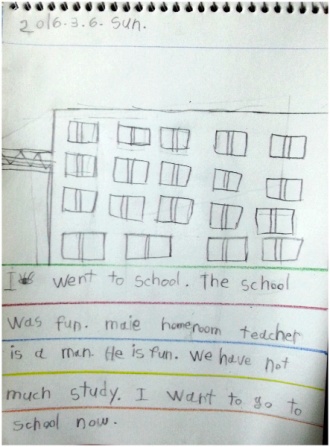 2016.3.6. Sun.
I went to school. The school
was fun. maie homeroom teacher
is a man. He is fun. We have not
much study. I want to go to
school now.